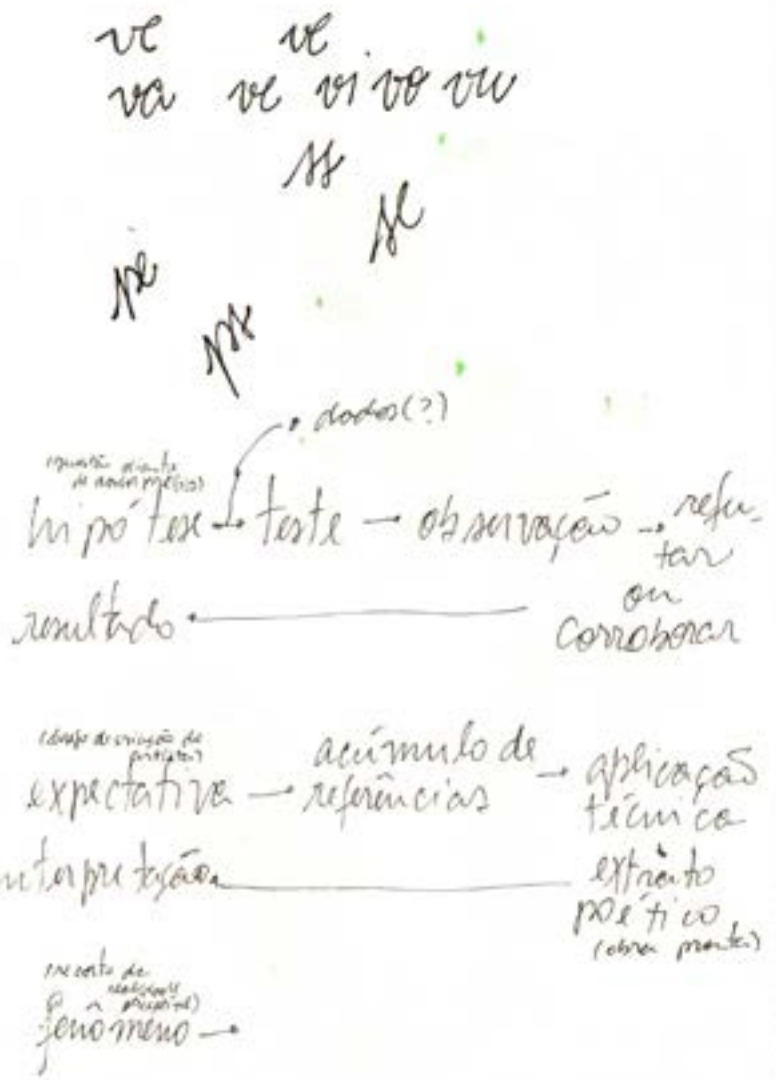 ve ve
va ve vi vo vu
se
pe
dados(?)
hipótese → teste → observação → refu-
tar
ou
corroborar
resultado
acúmulo de
expectativa → referências → aplicação
técnica
interpretação
extrato
poético
(obra pronta)
fenomeno →